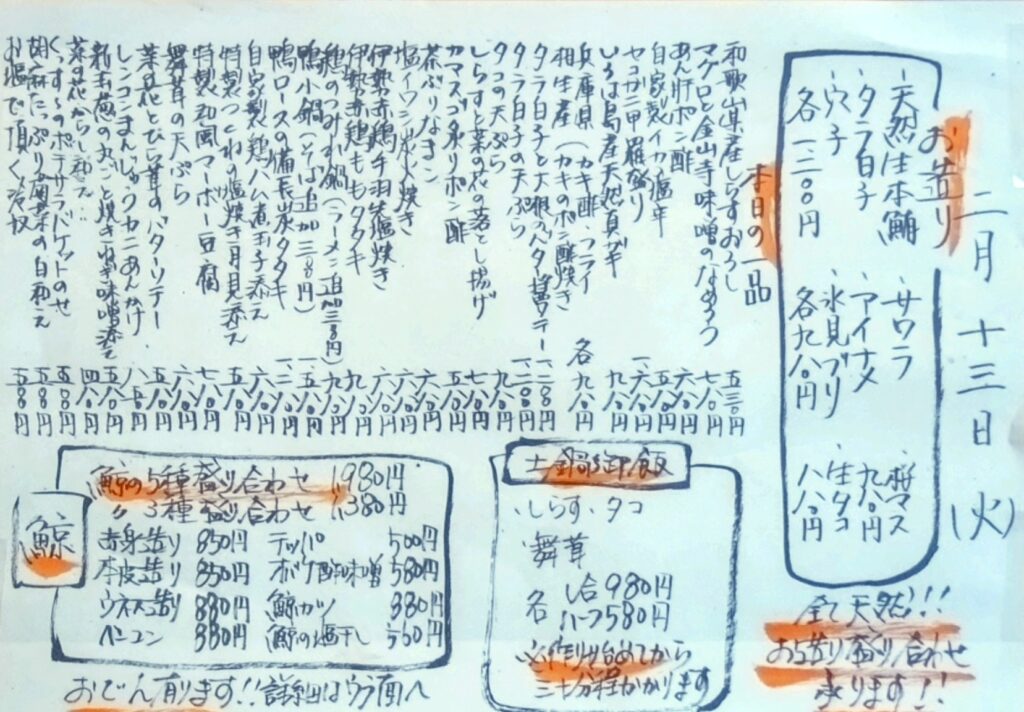 二月十三日(火)
お造り
・天然生本鮪
・タラ白子
・穴子
各一二〇〇円
・サワラ
・アイナメ
・氷見ブリ
各九八〇円
・桜マス
九八〇円
・生タコ
八八〇円
全て天然!!
お造り盛り合わせ
承ります!!
本日の一品
和歌山県産しらすおろし 五三〇円
マグロと金山寺味噌のなめろう 七八〇円
あん肝ポン酢 六八〇円
自家製イカの塩辛 五八〇円
セコガニ甲羅盛り 一六八〇円
いろは島産天然真ガキ 九八〇円
兵庫県(カキ酢、フライ
相生産(カキのポン酢焼き 各九八〇円
タラ白子と大根のバター醤油ソテー 一二八〇円
タラ白子の天ぷら 一二〇〇円
タコの天ぷら 九八〇円
しらすと菜の花の落とし揚げ 七八〇円
カマスゴ炙りポン酢 五八〇円
茶ぶりなまこ 六八〇円
塩イワシ炭火焼き
伊勢赤鶏手羽先塩焼き
伊勢赤鶏ももタタキ 九八〇円
鶏のつみれ鍋(ラーメン追加三三〇円)
鴨小鍋(そば追加三三〇円)
鴨ロースの備長炭タタキ
自家製鶏ハム煮玉子添え 六八〇円
特製つくねの塩焼き月見添え 五八〇円
特製和風マーボー豆腐 七八〇円
舞茸の天ぷら 六八〇円
菜の花とひら茸のバターソテー 五八〇円
レンコンまんじゅうカニあんかけ 八八〇円
新玉葱の丸ごと焼きねぎ味噌添え
菜の花からし和え 四八〇円
くんすものポテサラバケットのせ 五八〇円
胡麻たっぷり菊菜の白和え 五八〇円
お塩で頂く冷奴 五八〇円
鯨
鯨の5種盛り合わせ 1,980円
〃 3種盛り合わせ 1,380円
赤身造り 850円 テッパ 500円
本皮造り 850円 オバケ酢味噌 580円
ウネス造り 880円 鯨カツ 880円
ベーコン 880円 鯨の塩干し 550円
おでん有ります!!詳細はウラ面へ
土鍋御飯
・しらす・タコ
舞茸
各 一合980円
ハーフ580円
※作り始めてから
三十分程かかります